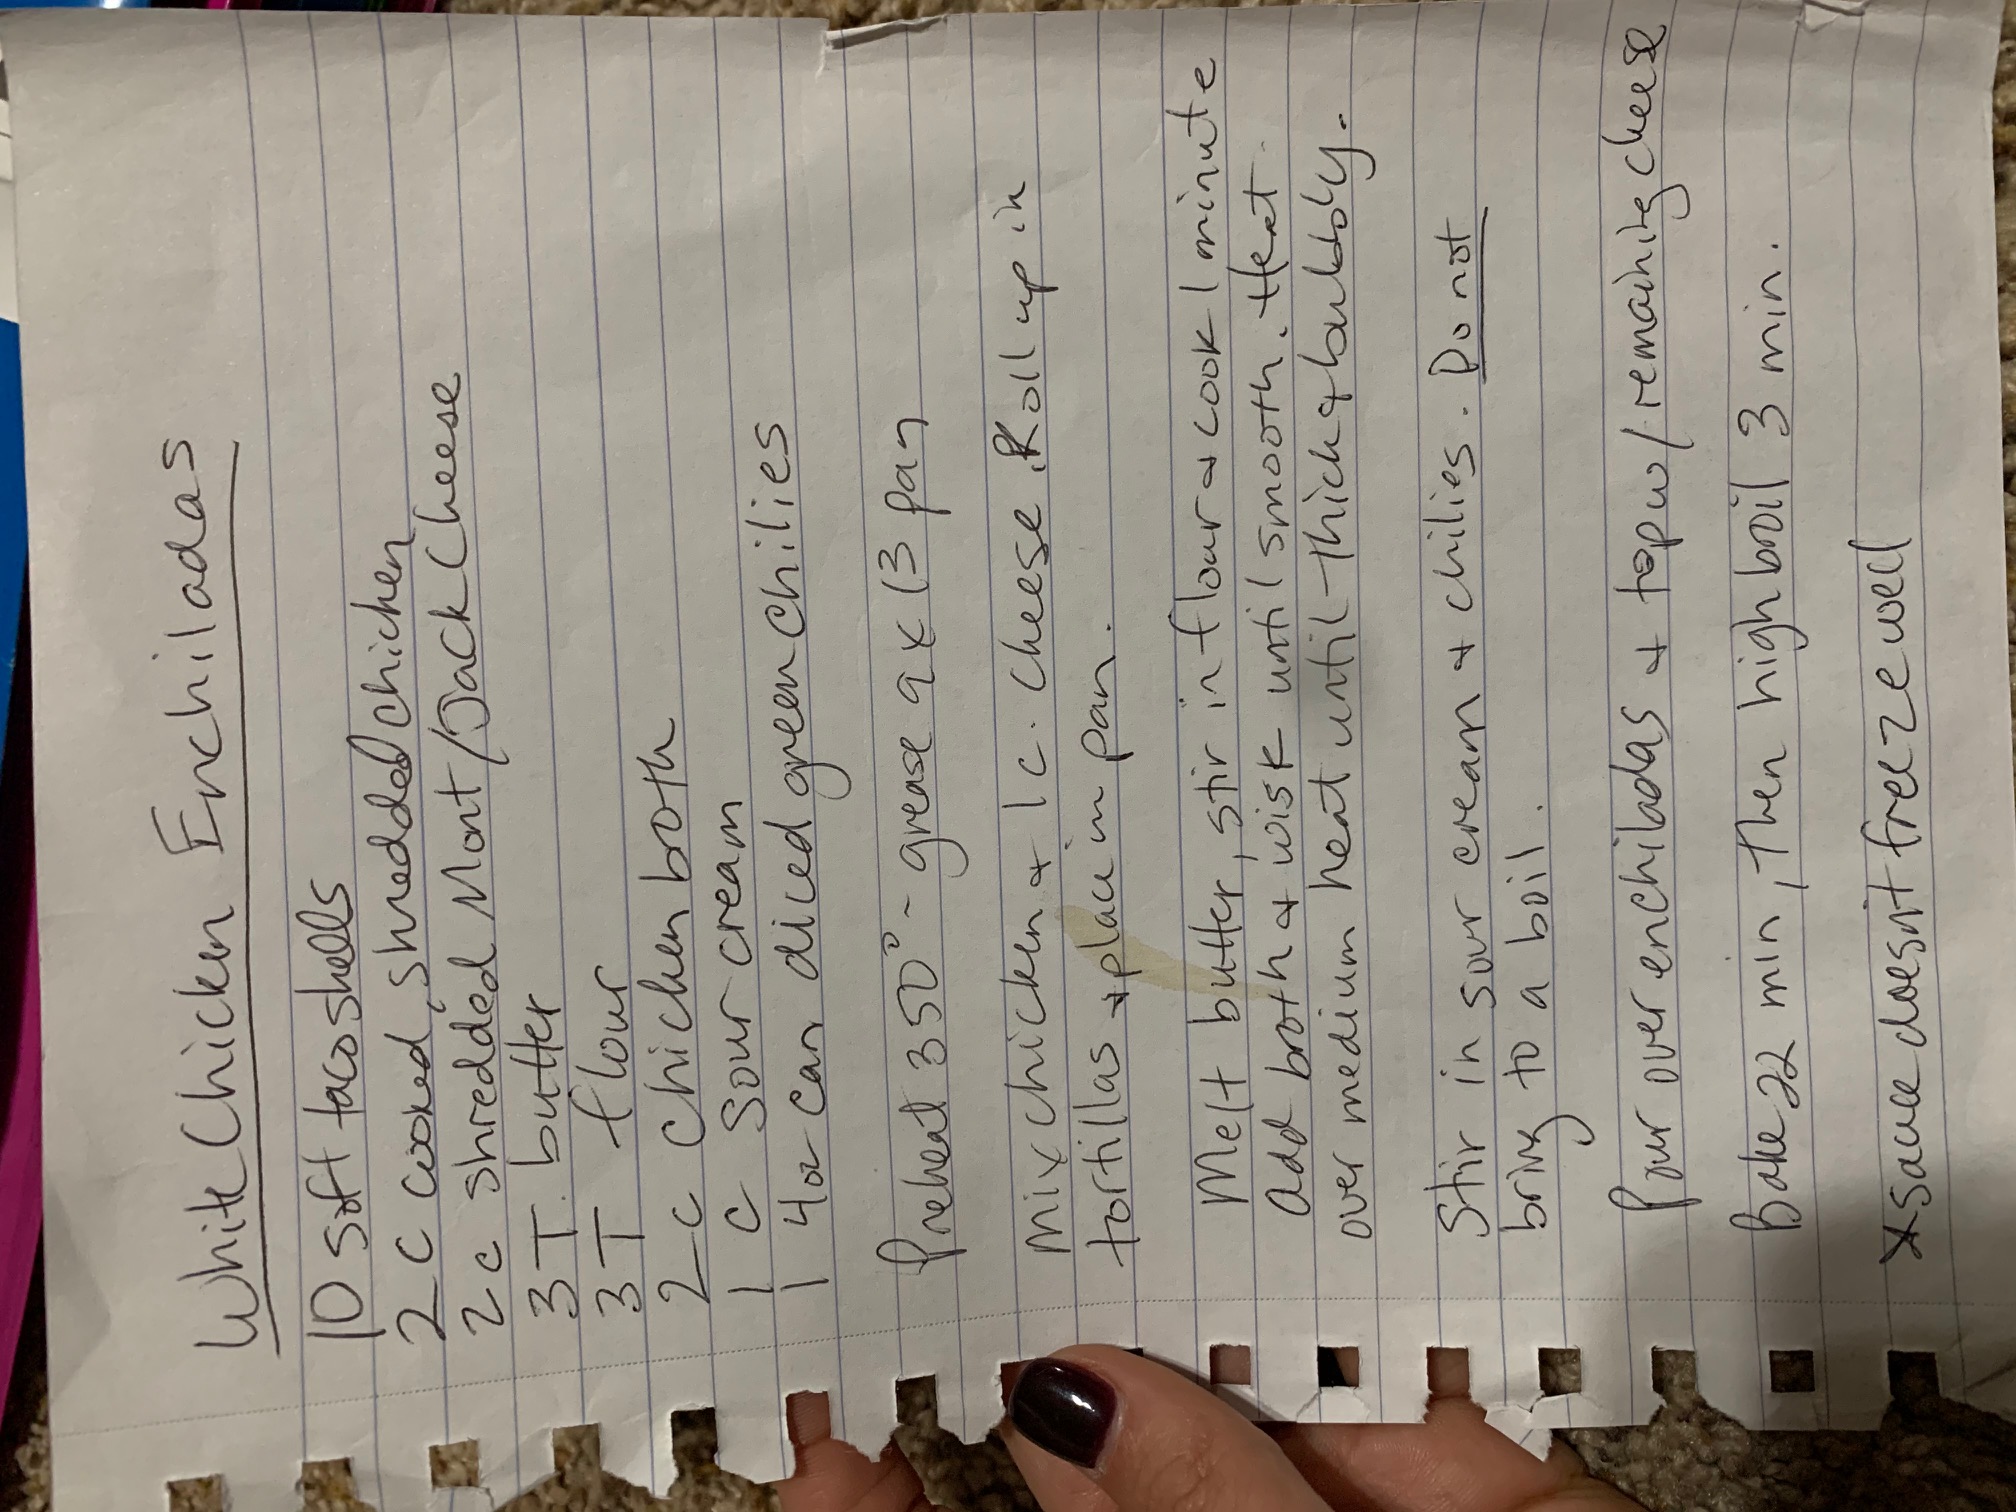 White Chicken Enchiladas
10 soft taco shells
2 C cooked, shredded chicken
2 c shredded Mont/Jack Cheese
3 T. butter
3 T flour
2 c chicken broth
1 c sour cream
1 4oz can diced green chilies
Preheat 350° - grease 9x13 pan
Mix chicken & 1 c. cheese. Roll up in
tortillas & place in pan.
Melt butter, stir in flour & cook 1 minute
add broth & wisk until smooth. Heat
over medium heat until thick & bubbly.
Stir in sour cream & chilies. Do not
bring to a boil.
Pour over enchiladas & top w/ remaining cheese
Bake 22 min, then high broil 3 min.
*sauce doesn't freeze well